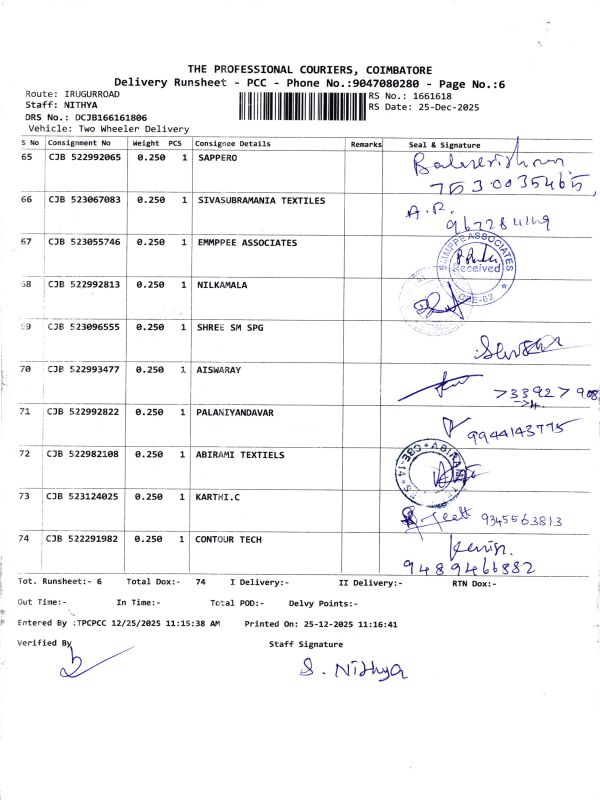 THE PROFESSIONAL COURIERS, COIMBATORE
Delivery Runsheet - PCC - Phone No.:9047080280 - Page No.:6
Route: IRUGURROAD RS No.: 1661618
Staff: NITHYA RS Date: 25-Dec-2025
DRS No.: DCJB166161806
Vehicle: Two Wheeler Delivery
S No Consignment No Weight PCS Consignee Details Remarks Seal & Signature
65 CJB 522992065 0.250 1 SAPPERO
66 CJB 523067083 0.250 1 SIVASUBRAMANIA TEXTILES
A.P.
67 CJB 523055746 0.250 1 EMMPPEE ASSOCIATES
EMMPPE ASSOCIATES
Received
CBE-62
68 CJB 522992813 0.250 1 NILKAMALA
69 CJB 523096555 0.250 1 SHREE SM SPG
70 CJB 522993477 0.250 1 AISWARAY
71 CJB 522992822 0.250 1 PALANIYANDAVAR
9944143775
72 CJB 522982108 0.250 1 ABIRAMI TEXTIELS
CBE-14
73 CJB 523124025 0.250 1 KARTHI.C
9345563813
74 CJB 522291982 0.250 1 CONTOUR TECH
9489466882
Tot. Runsheet:- 6 Total Dox:- 74 I Delivery:- II Delivery:- RTN Dox:-
Out Time:- In Time:- Total POD:- Delvy Points:-
Entered By :TPCPCC 12/25/2025 11:15:38 AM Printed On: 25-12-2025 11:16:41
Verified By Staff Signature
S. Nithya